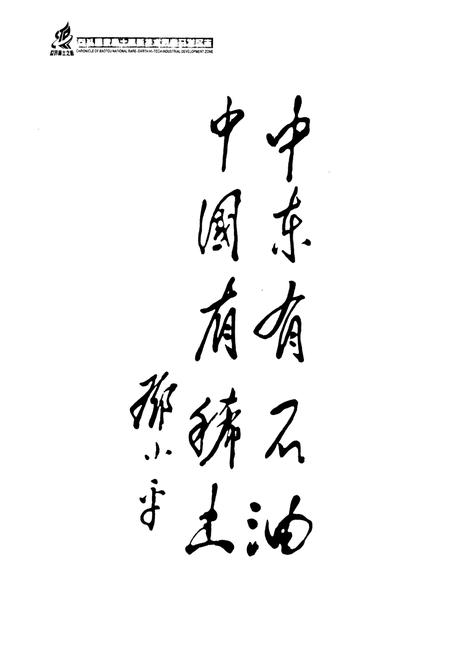 CHRONICLE OF BAOTOU NATIONAL RARE-EARTH HI-TECH INDUSTRIAL DEVELOPMENT ZONE
中东有石油
中國有稀土
鄧小平